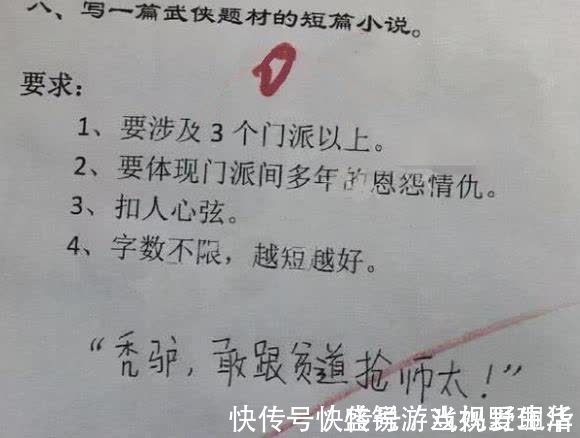 八、写一篇武侠题材的短篇小说。
0
要求：
1、要涉及 3 个门派以上。
2、要体现门派间多年的恩怨情仇。
3、扣人心弦。
4、字数不限，越短越好。
“秃驴，敢跟贫道抢师太！”
快传号